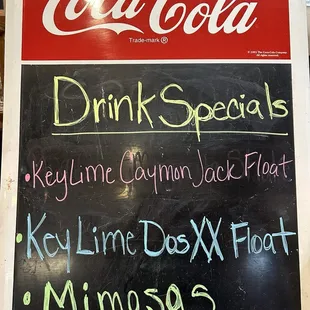 Coca Cola
Trade-mark ®
Drink Specials
• Key Lime Caymon Jack Float
• Key Lime Dos XX Float
• Mimosas